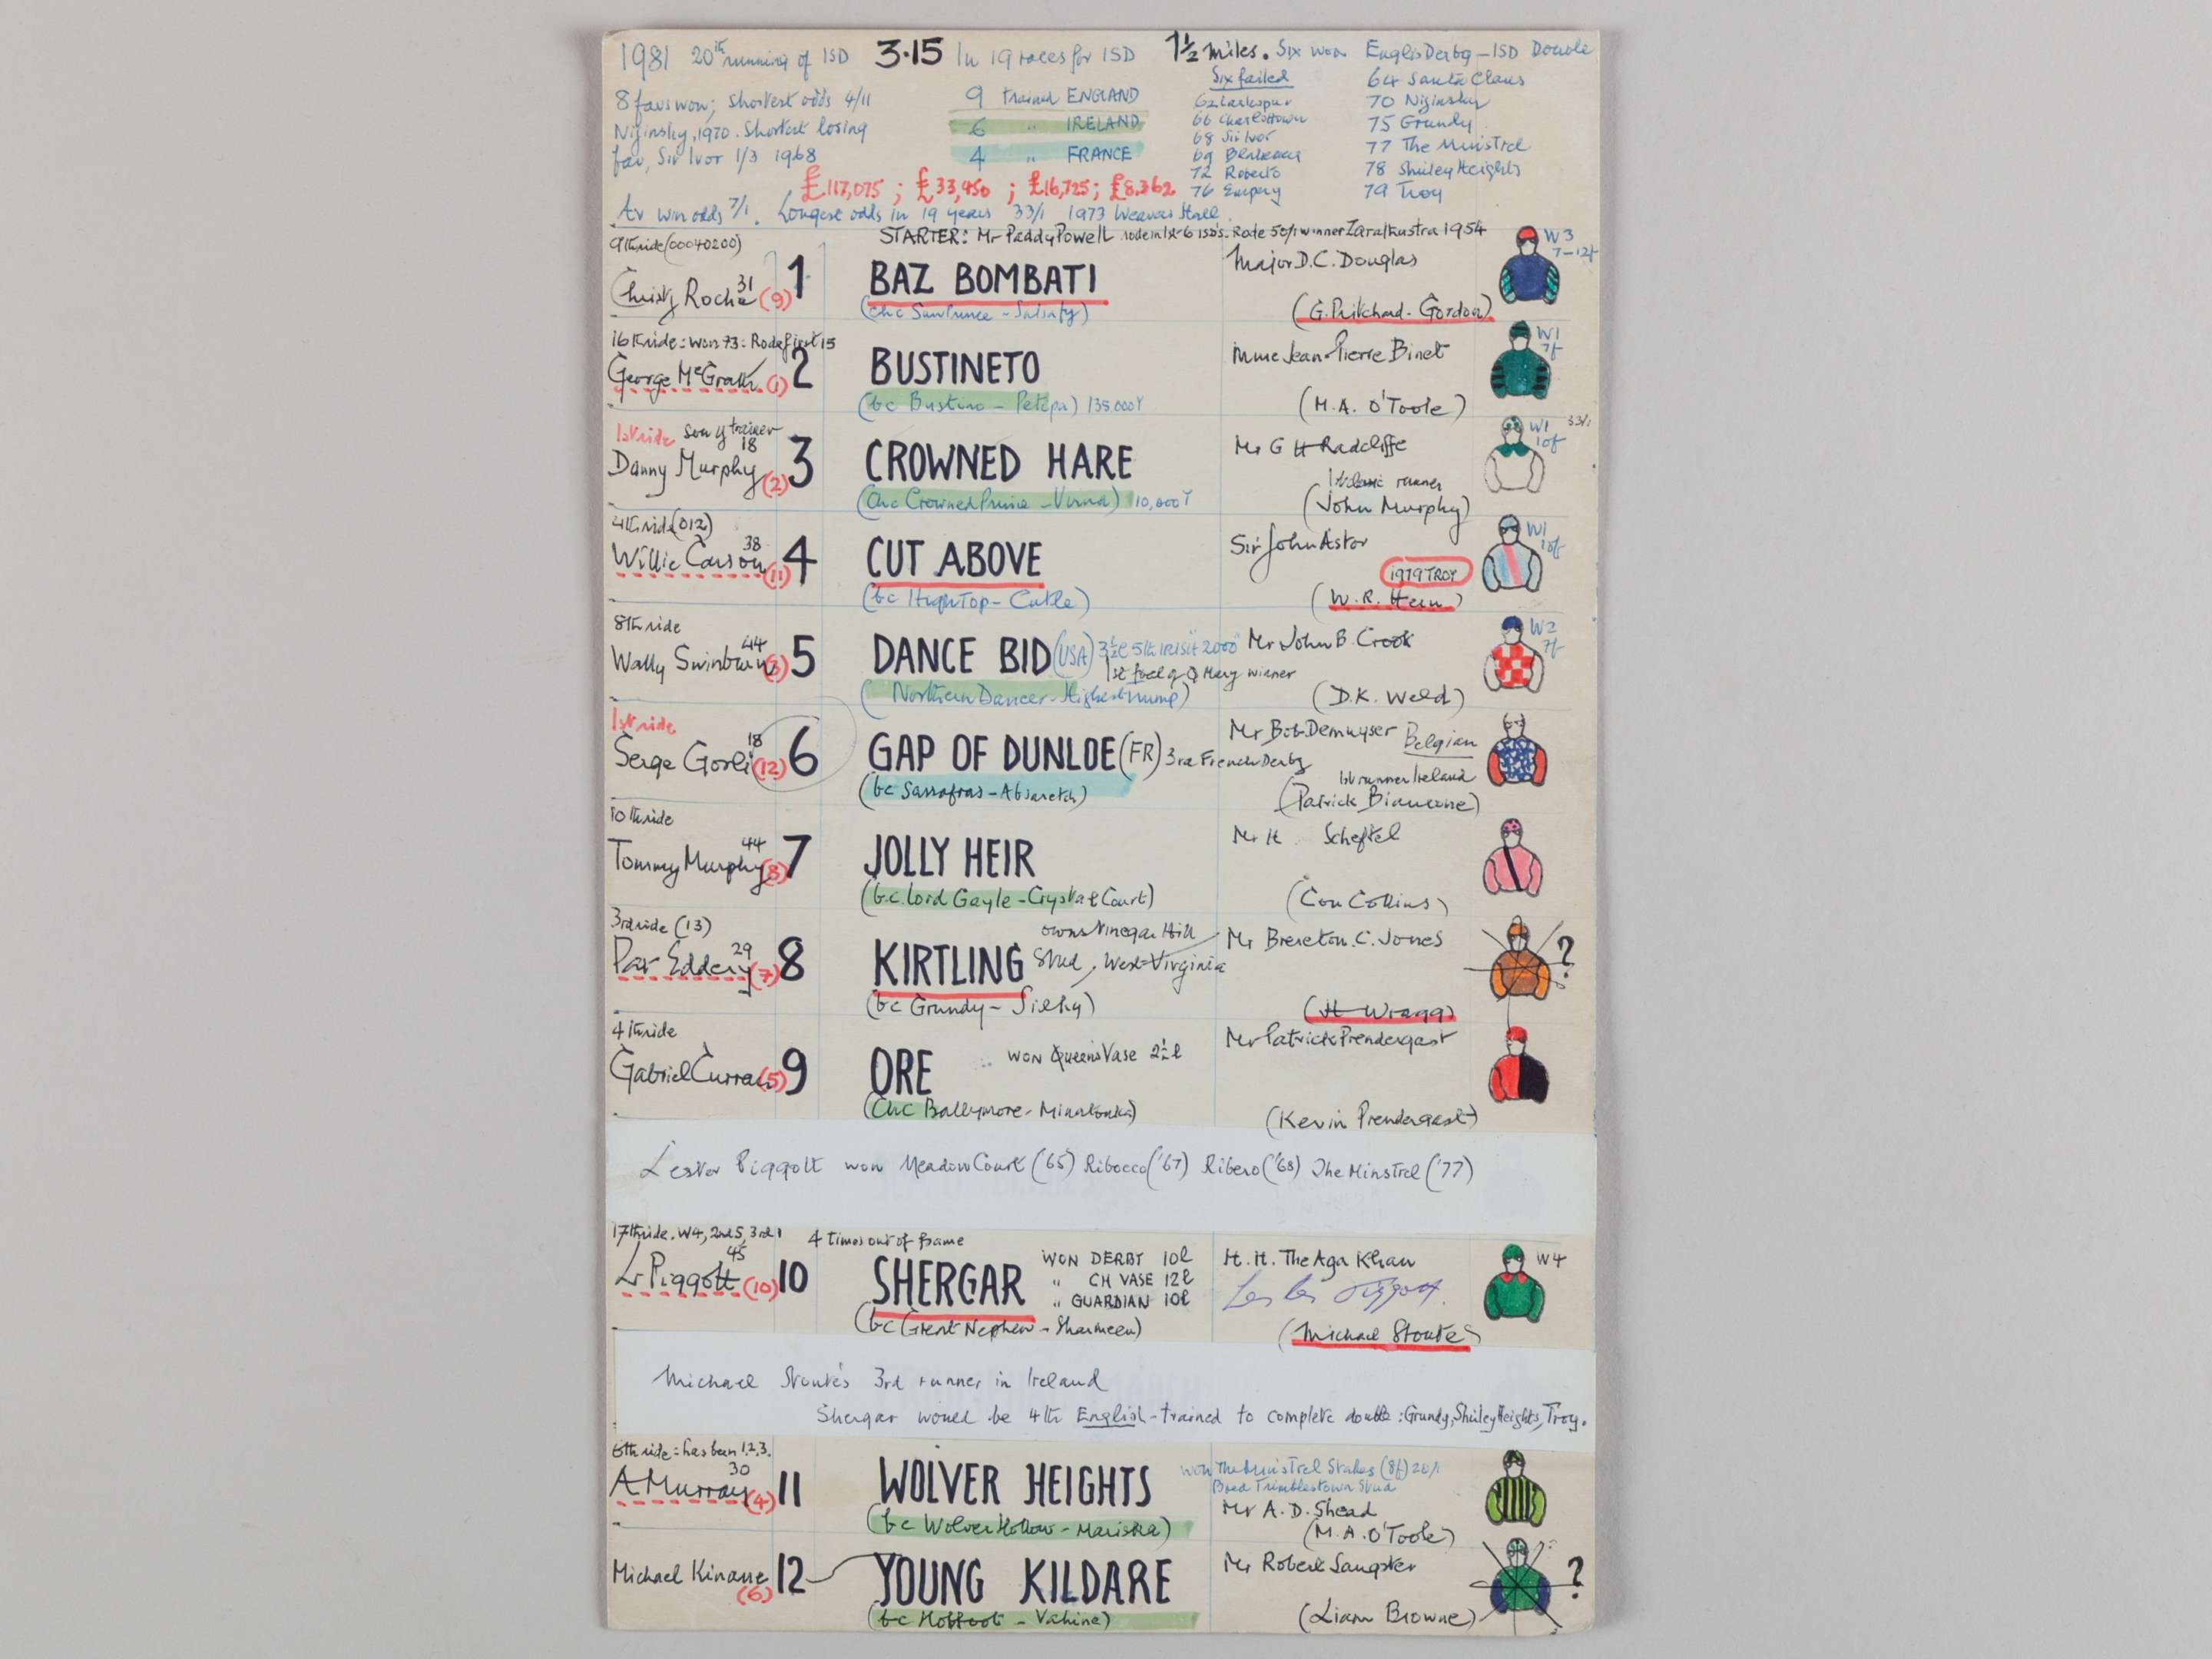 1981 20th running of ISD 3.15 In 19 races for ISD 1½ miles. Six won English Derby - ISD Double
8 favs won; shortest odds 4/11
Nijinsky, 1970. Shortest losing
fav, Sir Ivor 1/3 1968
9 trained ENGLAND
6 " IRELAND
4 " FRANCE
Six failed
62 Larkspur
66 Charlottown
68 Sir Ivor
69 Blakeney
72 Roberto
76 Empery
64 Santa Claus
70 Nijinsky
75 Grundy
77 The Minstrel
78 Shirley Heights
79 Troy
£117,075; £33,450; £16,725; £8,362
Av win odds 7/1. Longest odds in 19 years 33/1 1973 Weavers Hall.
STARTER: Mr Paddy Powell rode in 1st 6 ISDs. Rode 50/1 winner Zarathustra 1954
9th ride (00040200)
Christy Roche 31 (9) 1 BAZ BOMBATI Major D.C. Douglas W3 7-12f
(chc Sun Prince - Salsafy) (G. Pritchard-Gordon)
16th ride: Won 73: Rode first 15
George McGrath (1) 2 BUSTINETO Mme Jean-Pierre Binet W1 7f
(bc Bustino - Petipa) 135,000Y (M.A. O'Toole)
1st ride son of trainer
Danny Murphy 18 (2) 3 CROWNED HARE Mr G H Radcliffe W1 10f 33/1
(chc Crowned Prince - Verna) 10,000Y 1st classic runner
(John Murphy)
4th ride (012)
Willie Carson 38 (11) 4 CUT ABOVE Sir John Astor W1 10f
1979 TROY
(bc High Top - Cutle) (W.R. Hern)
8th ride
Wally Swinburn 44 (3) 5 DANCE BID (USA) 3½l 5th Irish "2000" Mr John B. Crook W2 7f
1st foal of Q Mary winner
(Northern Dancer - Highest Trump) (D.K. Weld)
1st ride
Serge Gorli 18 (12) 6 GAP OF DUNLOE (FR) 3rd French Derby Mr Bob Demuyser Belgian
1st runner Ireland
(bc Sassafras - Absaretch) (Patrick Biancone)
10th ride
Tommy Murphy 44 (8) 7 JOLLY HEIR Mr H Scheftel
(b.c. Lord Gayle - Crystal Court) (Con Collins)
3rd ride (13)
Pat Eddery 29 (7) 8 KIRTLING owns Vinegar Hill Stud, West Virginia Mr Brereton C. Jones ?
(bc Grundy - Silky) (H Wragg)
4th ride
Gabriel Curran (5) 9 ORE won Queens Vase 2½l Mr Patrick Prendergast
(chc Ballymore - Minatonka) (Kevin Prendergast)
Lester Piggott won Meadow Court ('65) Ribocco ('67) Ribero ('68) The Minstrel ('77)
17th ride. W4, 2nd 5, 3rd 1 4 times out of frame
L Piggott 45 (10) 10 SHERGAR H.H. The Aga Khan W4
WON DERBY 10l
" CH VASE 12l
" GUARDIAN 10l
Lester Piggott
(bc Great Nephew - Sharmeen) (Michael Stoute)
Michael Stoute's 3rd runner in Ireland
Shergar would be 4th English-trained to complete double: Grundy, Shirley Heights, Troy.
6th ride = has been 1.2.3.
A Murray 30 (4) 11 WOLVER HEIGHTS won The Minstrel Stakes (8f) 20/1
Bred Trimblestown Stud
Mr A.D. Shead
(bc Wolver Hollow - Mariska) (M.A. O'Toole)
Michael Kinane (6) 12 YOUNG KILDARE Mr Robert Sangster ?
(bc Hotfoot - Vahine) (Liam Browne)